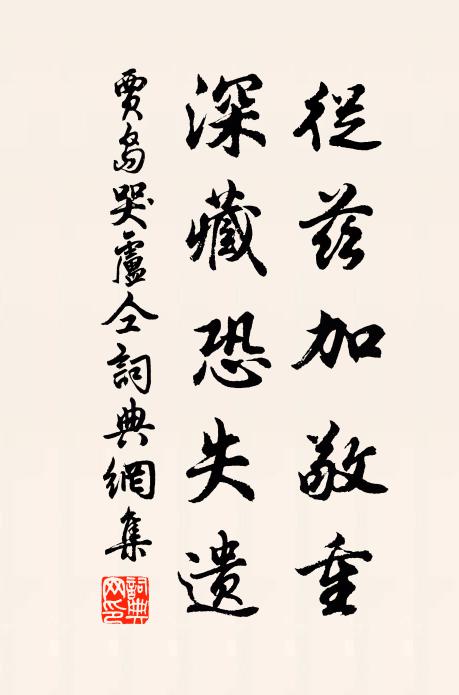 從茲加敬重
深藏恐失遺
賈島哭盧仝詞典網集
詞典
网印